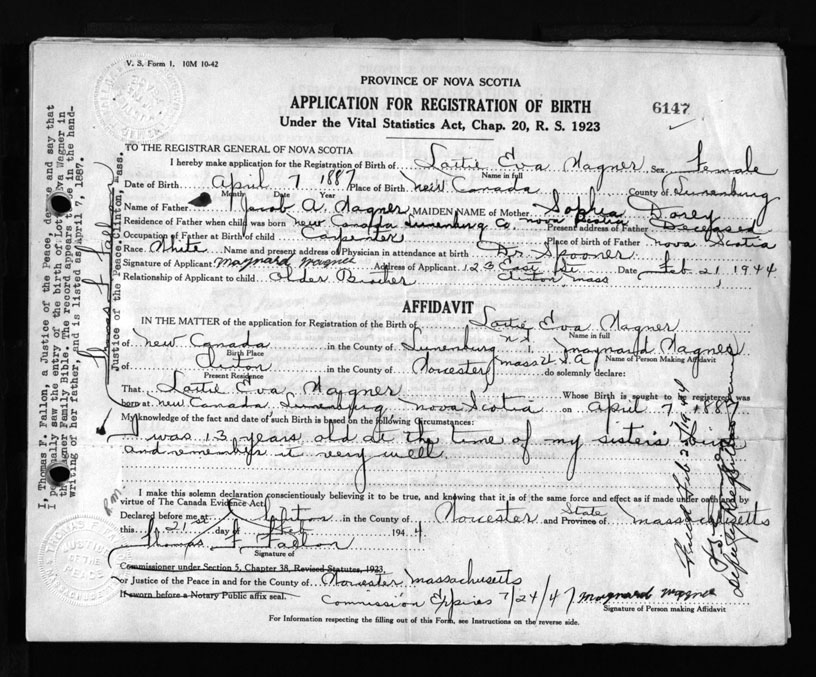 V. S. Form 1. 10M 10-42
PROVINCE OF NOVA SCOTIA
APPLICATION FOR REGISTRATION OF BIRTH
6147
Under the Vital Statistics Act, Chap. 20, R. S. 1923
TO THE REGISTRAR GENERAL OF NOVA SCOTIA
I hereby make application for the Registration of Birth of Lottie Eva Wagner Sex Female
Name in full
Date of Birth April 7 1887 Place of Birth New Canada County of Lunenburg
Month Date Year
Name of Father Jacob A. Wagner MAIDEN NAME of Mother Sophia Dorey
Residence of Father when child was born New Canada Lunenburg Co. nova Scotia Present address of Father Deceased
Occupation of Father at Birth of child Carpenter Place of birth of Father nova Scotia
Race White Name and present address of Physician in attendance at birth Dr. Spooner
Signature of Applicant Maynard Wagner Address of Applicant 123 St. Date Feb 21, 1944
Relationship of Applicant to child Older Brother Clinton mass
AFFIDAVIT
IN THE MATTER of the application for Registration of the Birth of Lottie Eva Wagner
Name in full
of New Canada in the County of Lunenburg Maynard Wagner
Birth Place Name of Person Making Affidavit
of Clinton in the County of Worcester mass U.S.A. do solemnly declare:
Present Residence
That Lottie Eva Wagner Whose Birth is sought to be registered was
born at New Canada, Lunenburg nova Scotia on April 7 1887
My knowledge of the fact and date of such Birth is based on the following Circumstances:
I was 13 years old at the time of my sister's birth
and remember it very well
I make this solemn declaration conscientiously believing it to be true, and knowing that it is of the same force and effect as if made under oath and by
virtue of The Canada Evidence Act.
Declared before me at Clinton in the County of Worcester State and Province of massachusetts
this 21st day of Feb 1944
Thomas F. Fallon
Signature of
Commissioner under Section 5, Chapter 38, Revised Statutes, 1923,
or Justice of the Peace in and for the County of Worcester massachusetts
If sworn before a Notary Public affix seal.
Commission Expires 7/24/47 Maynard Wagner
Signature of Person making Affidavit
For Information respecting the filling out of this Form, see Instructions on the reverse side.
I, Thomas F. Fallon, a Justice of the Peace, depose and say that
I personally saw the entry of the birth of Lottie Eva Wagner in
the Wagner Family Bible. The record appears there in the hand-
writing of her father, and is listed as April 7, 1887.
Thomas F. Fallon
Justice of the Peace. Clinton, Mass.
JUSTICE OF THE PEACE